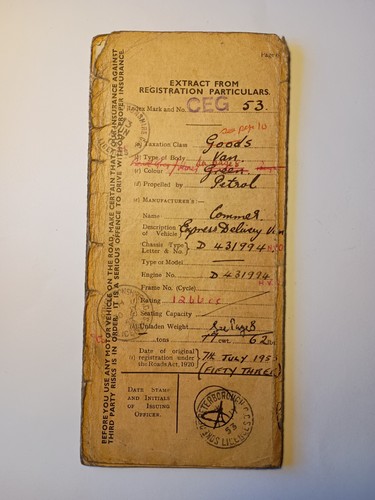 EXTRACT FROM
REGISTRATION PARTICULARS.
Index Mark and No. CEG 53.
see page 10
(a) Taxation Class Goods
(b) Type of Body Van
(c) Colour Green
(d) Propelled by Petrol
(e) MANUFACTURER'S—
Name Commer
Description of Vehicle Express Delivery Van
Chassis Type Letter & No. D 431994
Type or Model
Engine No. D 431994
Frame No. (Cycle)
Rating 1266 cc
Seating Capacity
Unladen Weight See Page
tons cwt.
Date of original registration under the Roads Act, 1920 7th JULY 195
(FIFTY THREE)
DATE STAMP
AND INITIALS
OF ISSUING
OFFICER.
PETERBOROUGH
53
BEFORE YOU USE ANY MOTOR VEHICLE ON THE ROAD, MAKE CERTAIN THAT YOUR INSURANCE AGAINST
THIRD PARTY RISKS IS IN ORDER. IT IS A SERIOUS OFFENCE TO DRIVE WITHOUT PROPER INSURANCE.